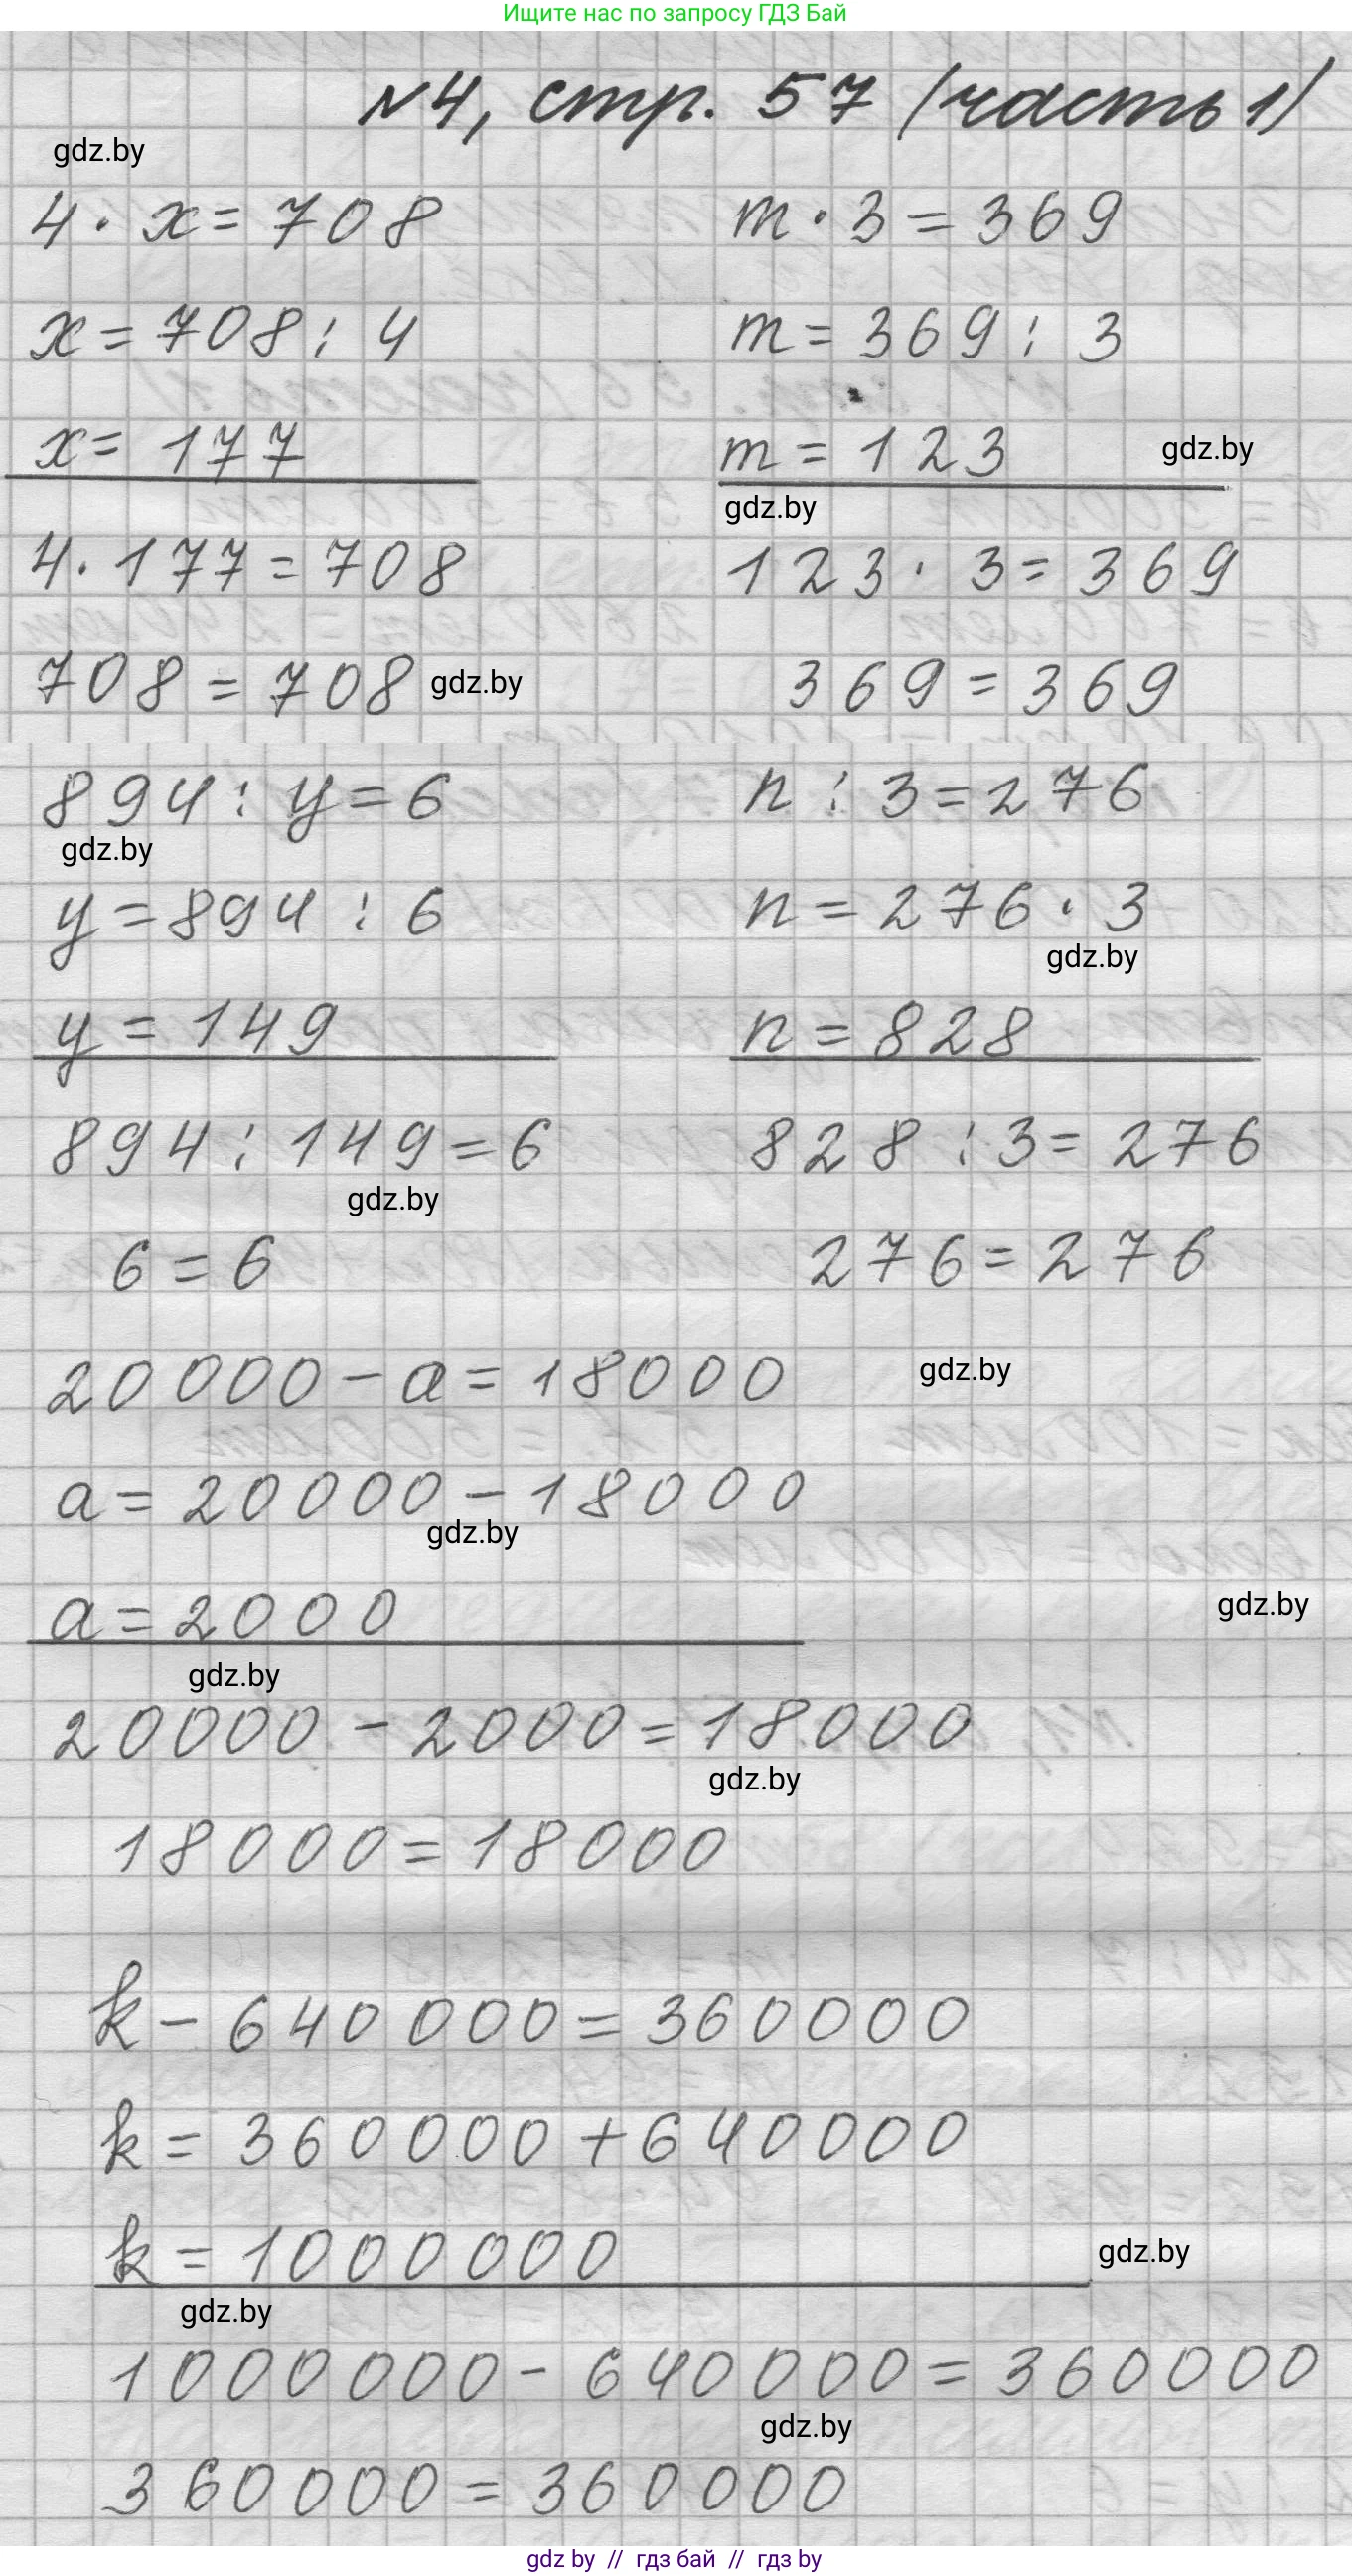 Ищите нас по запросу ГДЗ Бай
№4, стр. 57 (часть 1)
gdz.by
4 · x = 708
x = 708 : 4
x = 177
4 · 177 = 708
708 = 708 gdz.by
m · 3 = 369
m = 369 : 3
m = 123 gdz.by
gdz.by
123 · 3 = 369
369 = 369
894 : y = 6
gdz.by
y = 894 : 6
y = 149
894 : 149 = 6
gdz.by
6 = 6
n : 3 = 276
n = 276 · 3
gdz.by
n = 828
828 : 3 = 276
276 = 276
20000 - a = 18000 gdz.by
a = 20000 - 18000
gdz.by
a = 2000 gdz.by
gdz.by
20000 - 2000 = 18000
gdz.by
18000 = 18000
k - 640000 = 360000
k = 360000 + 640000
k = 1000000 gdz.by
gdz.by
1000000 - 640000 = 360000
gdz.by
360000 = 360000
gdz by // гдз бай // гдз by